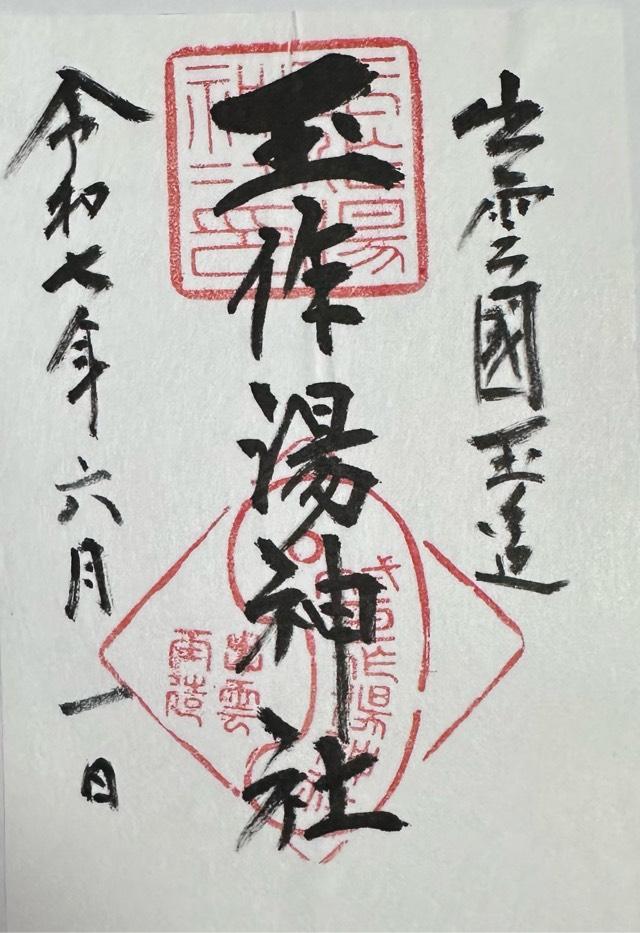 出雲國玉造
玉作湯神社
令和七年六月一日
玉作湯
神社印
式内玉作湯神社
出雲
玉造